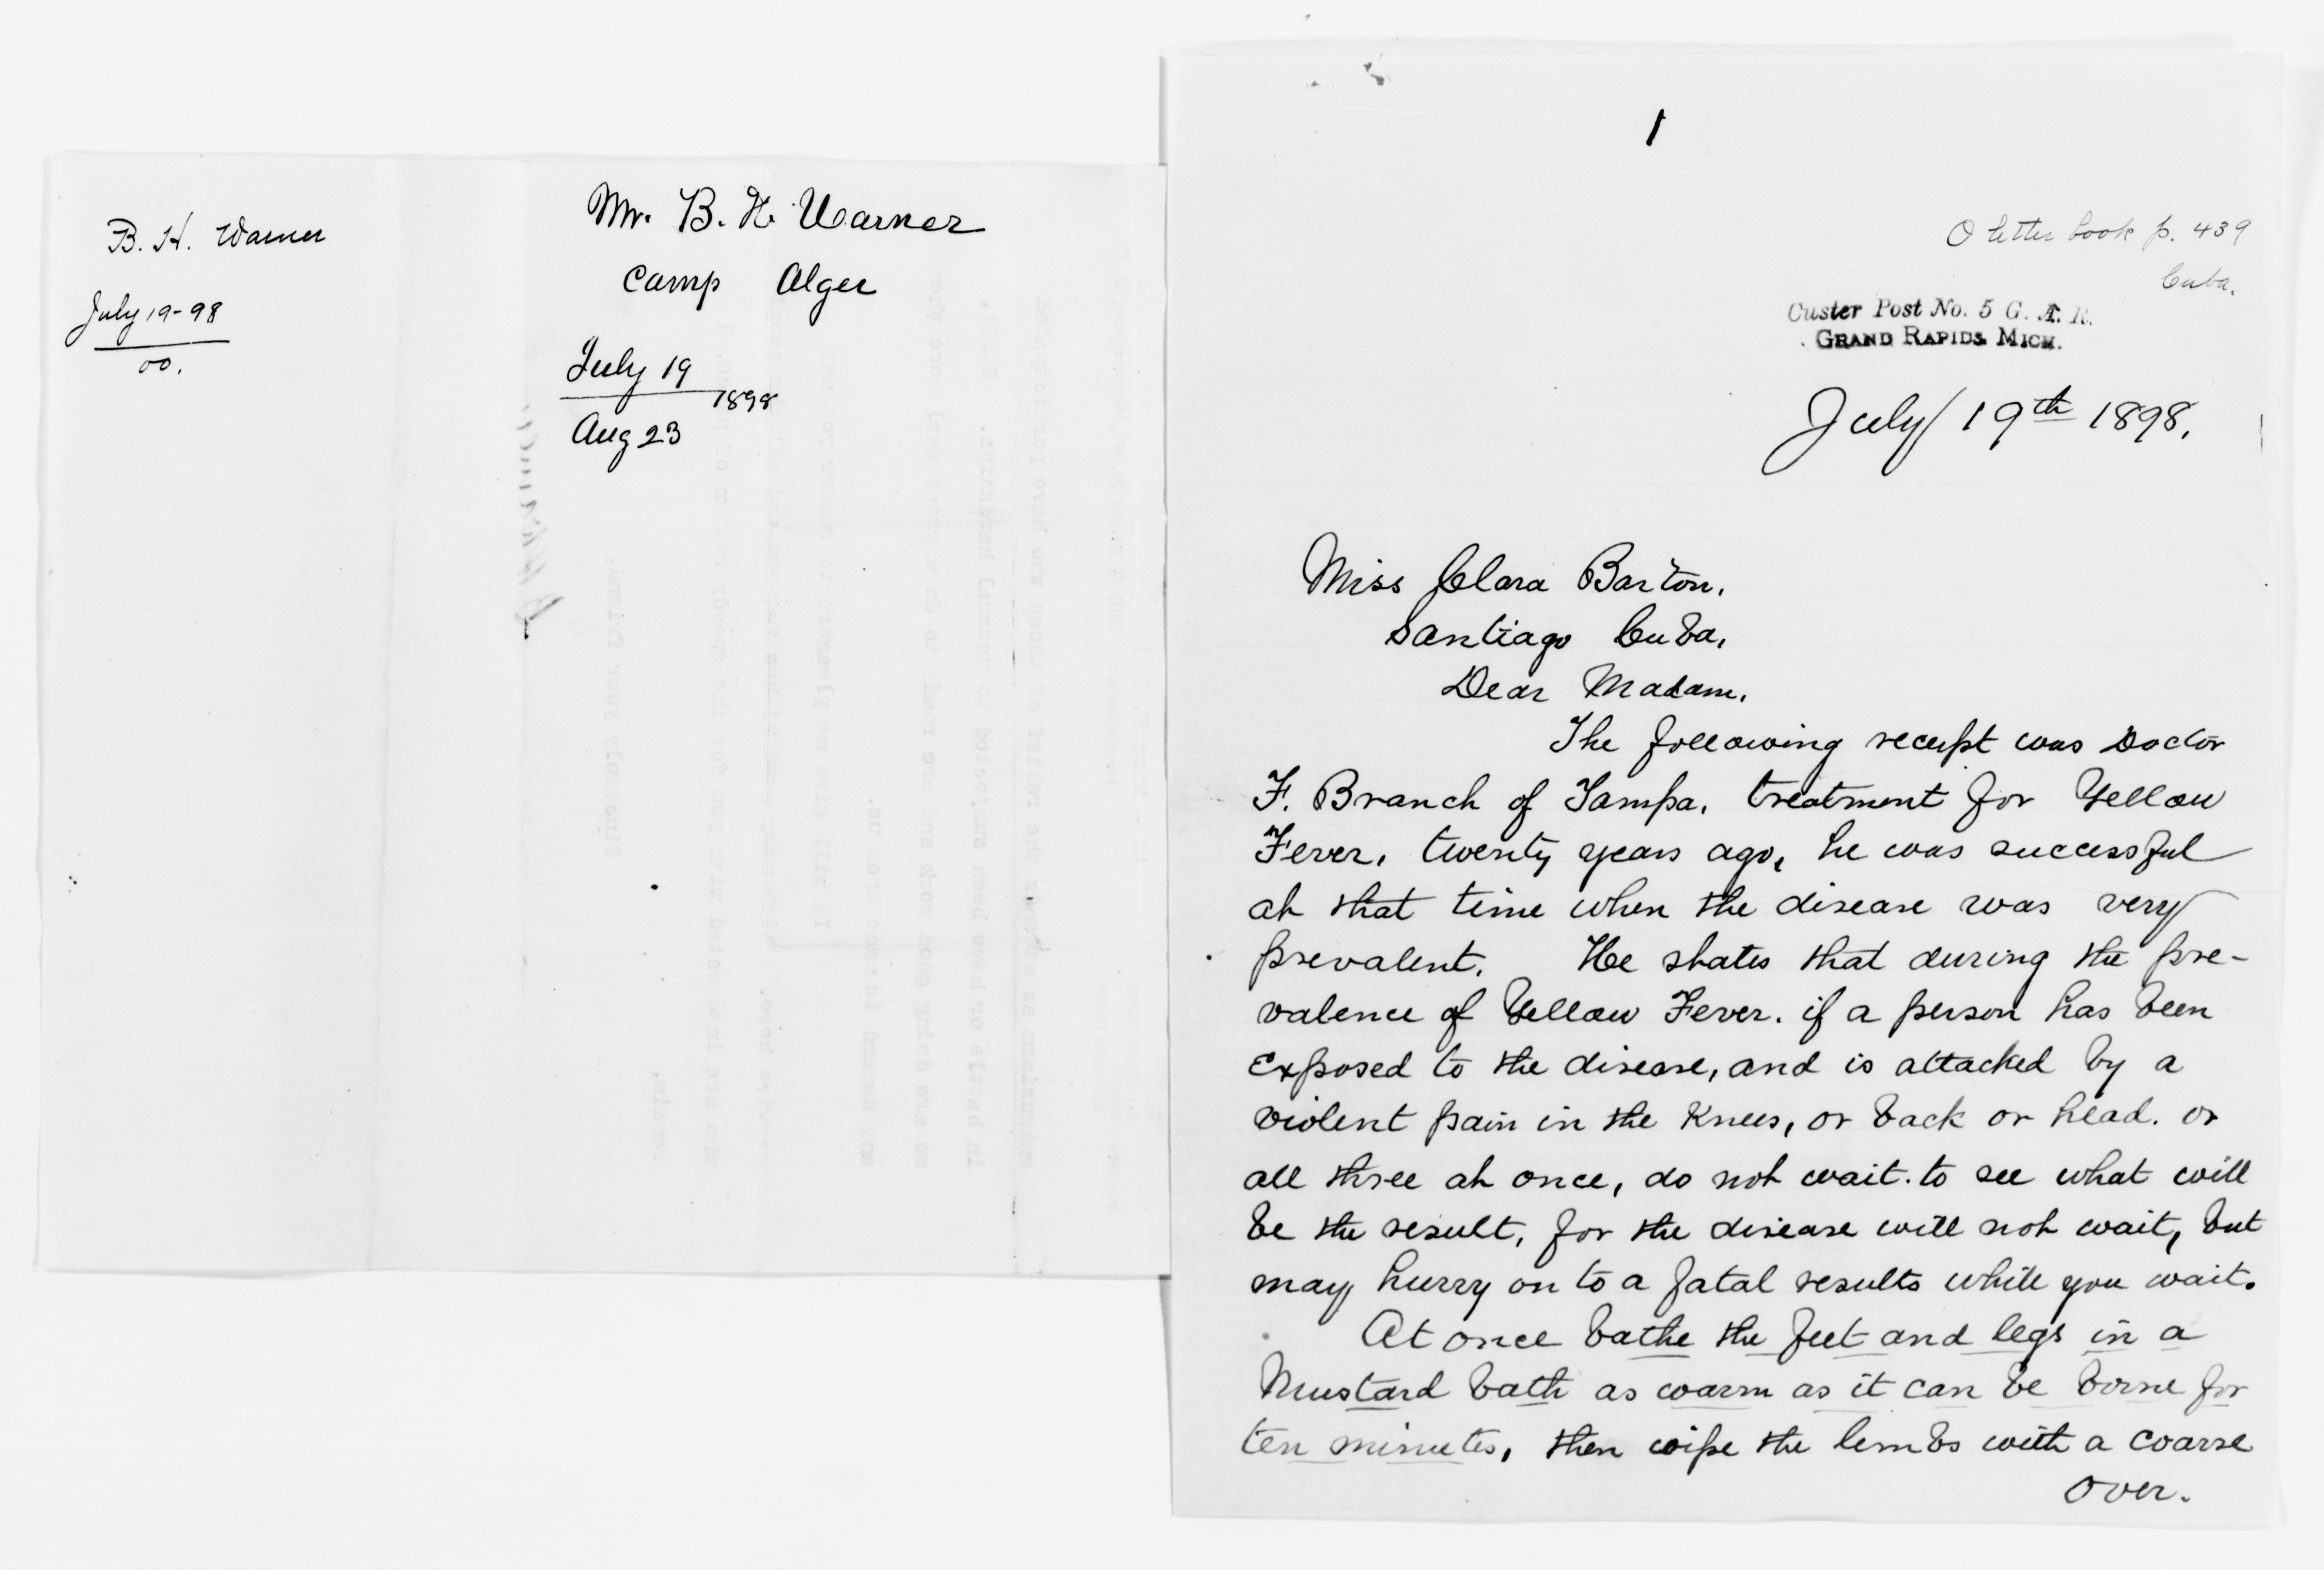 B. H. Warner
July 19-98
00.
Mr. B. H. Warner
Camp Alger
July 19
1898
Aug 23
1
O letter book p. 439
Cuba.
Custer Post No. 5 G. A. R.
GRAND RAPIDS MICH.
July 19th 1898.
Miss Clara Barton.
Santiago Cuba,
Dear Madam.
The following receipt was Doctor
F. Branch of Tampa, treatment for Yellow
Fever, twenty years ago, he was successful
at that time when the disease was very
prevalent. He states that during the pre-
valence of Yellow Fever. if a person has been
exposed to the disease, and is attacked by a
violent pain in the Knees, or back or head. or
all three at once, do not wait. to see what will
be the result, for the disease will not wait, but
may hurry on to a fatal results while you wait.
At once bathe the feet and legs in a
Mustard bath as warm as it can be borne for
ten minutes, then wipe the limbs with a coarse
over.